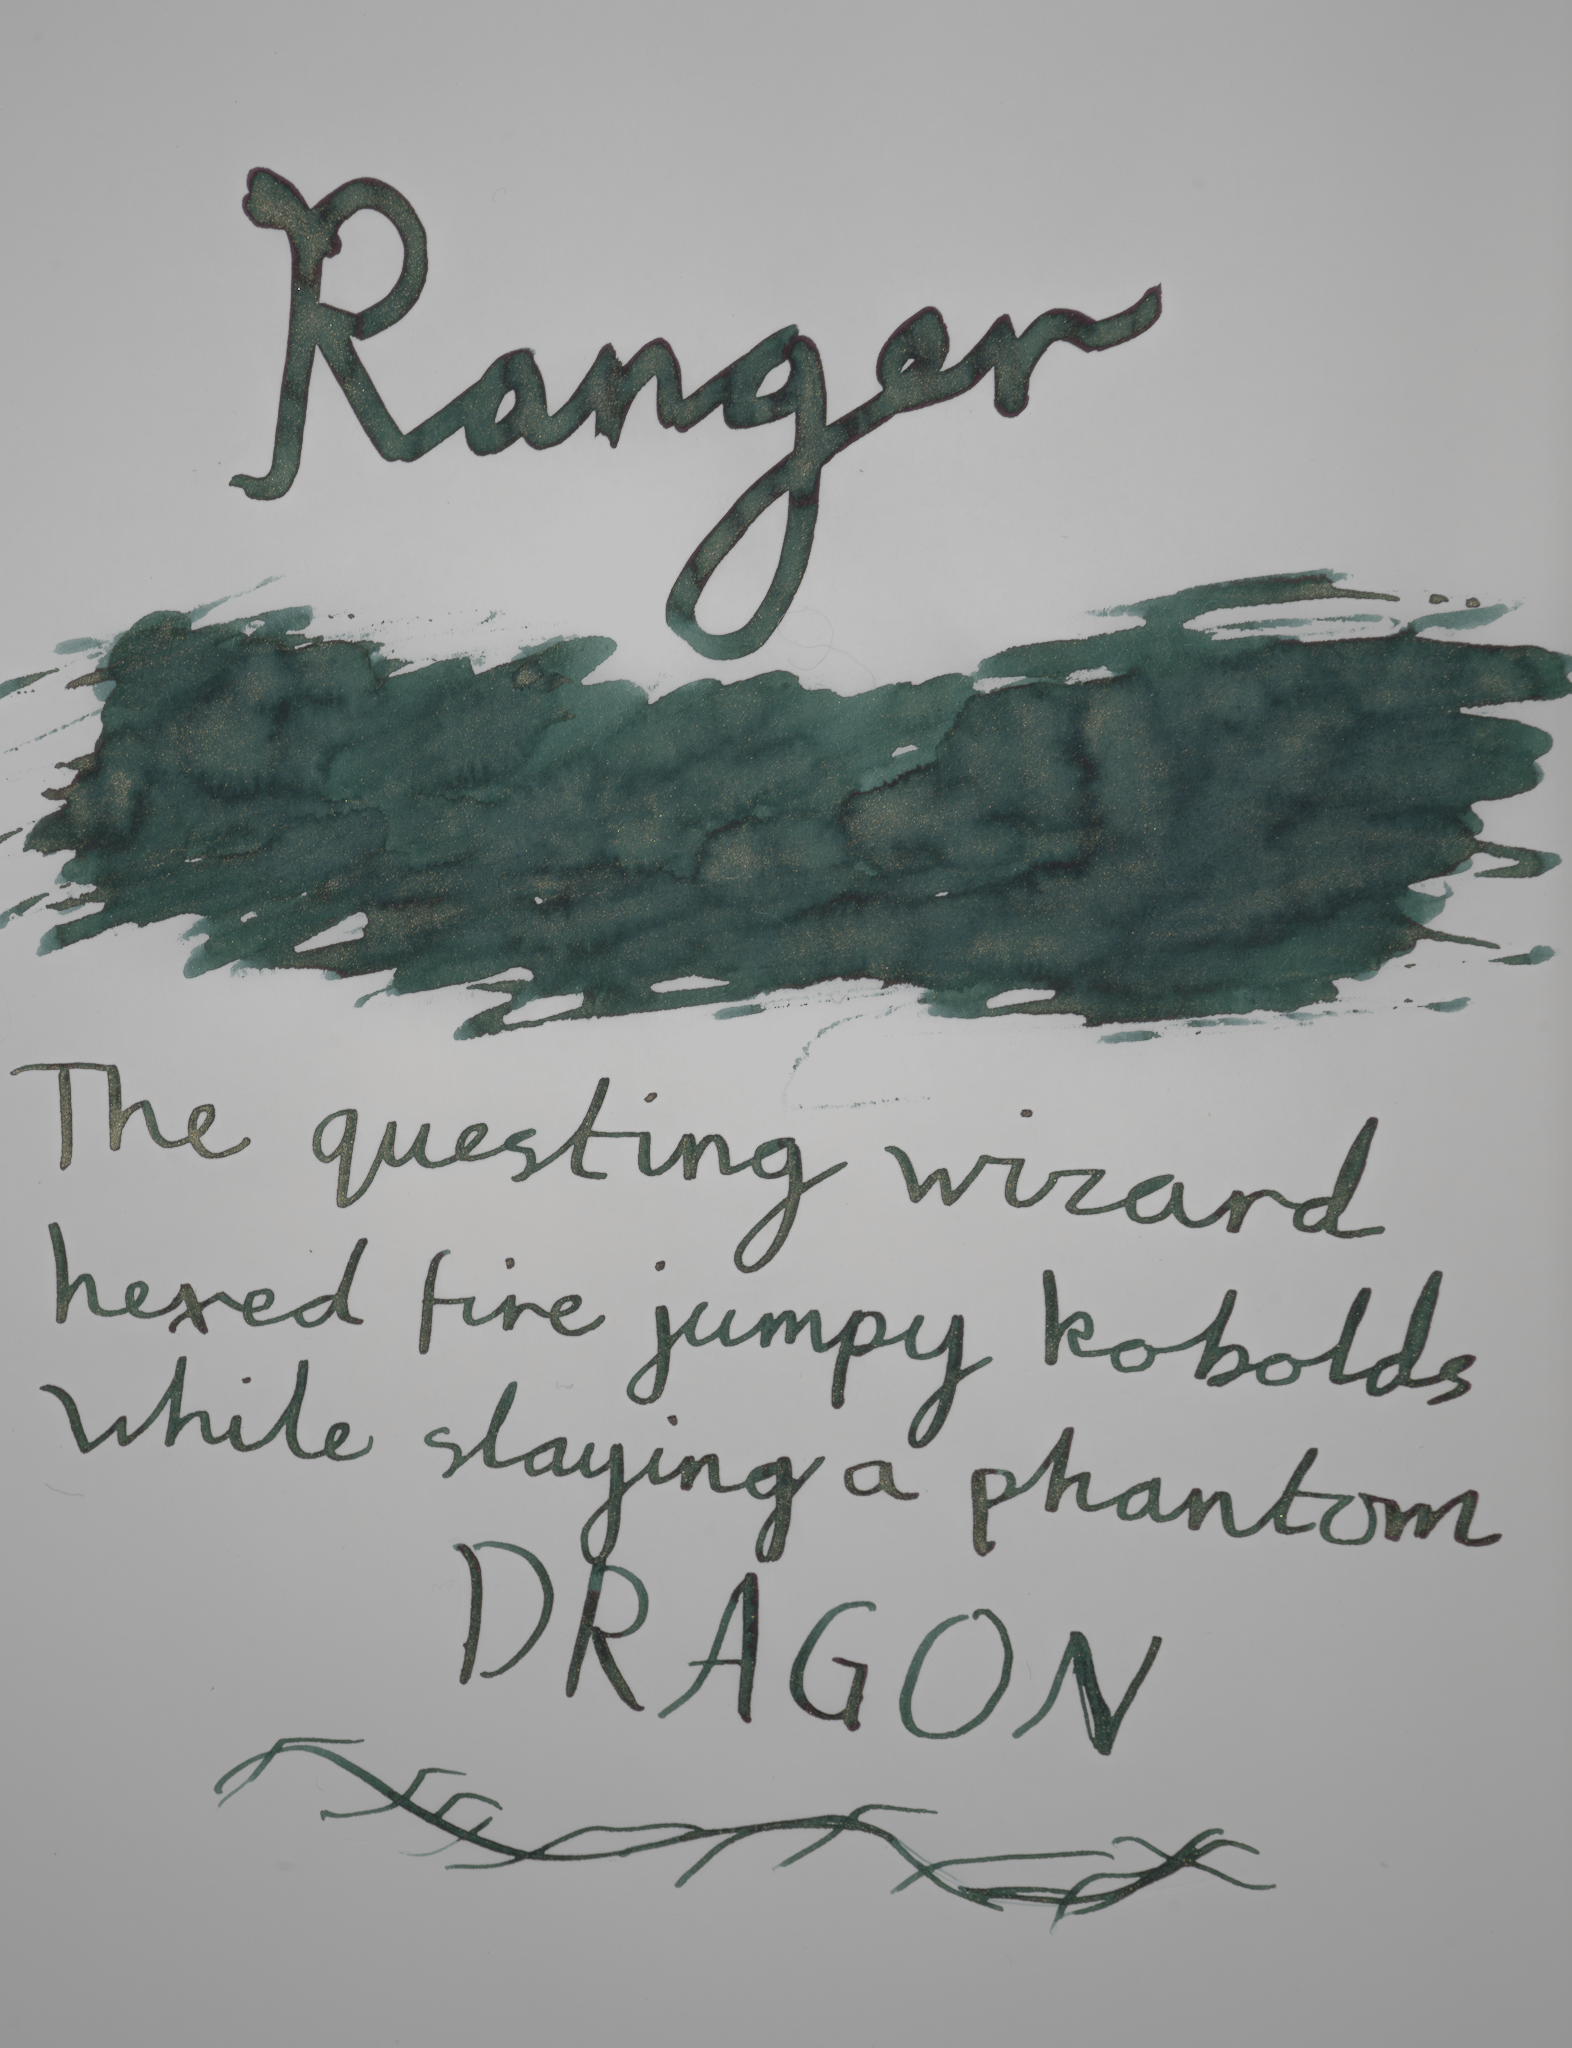 Ranger
The questing wizard
hexed fire jumpy kobolds
while slaying a phantom
DRAGON